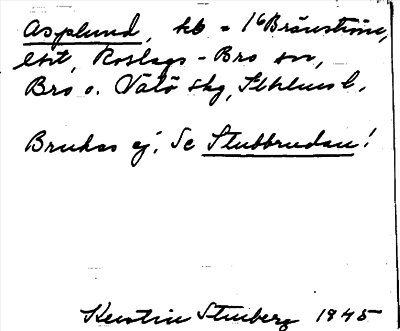 Asplund, kb = 16 Brännström,
lht, Roslags-Bro sn,
Bro o. Vätö skg, Sthlms l.
Brukas ej. Se Stubbrudan!
Kerstin Stenberg 1945